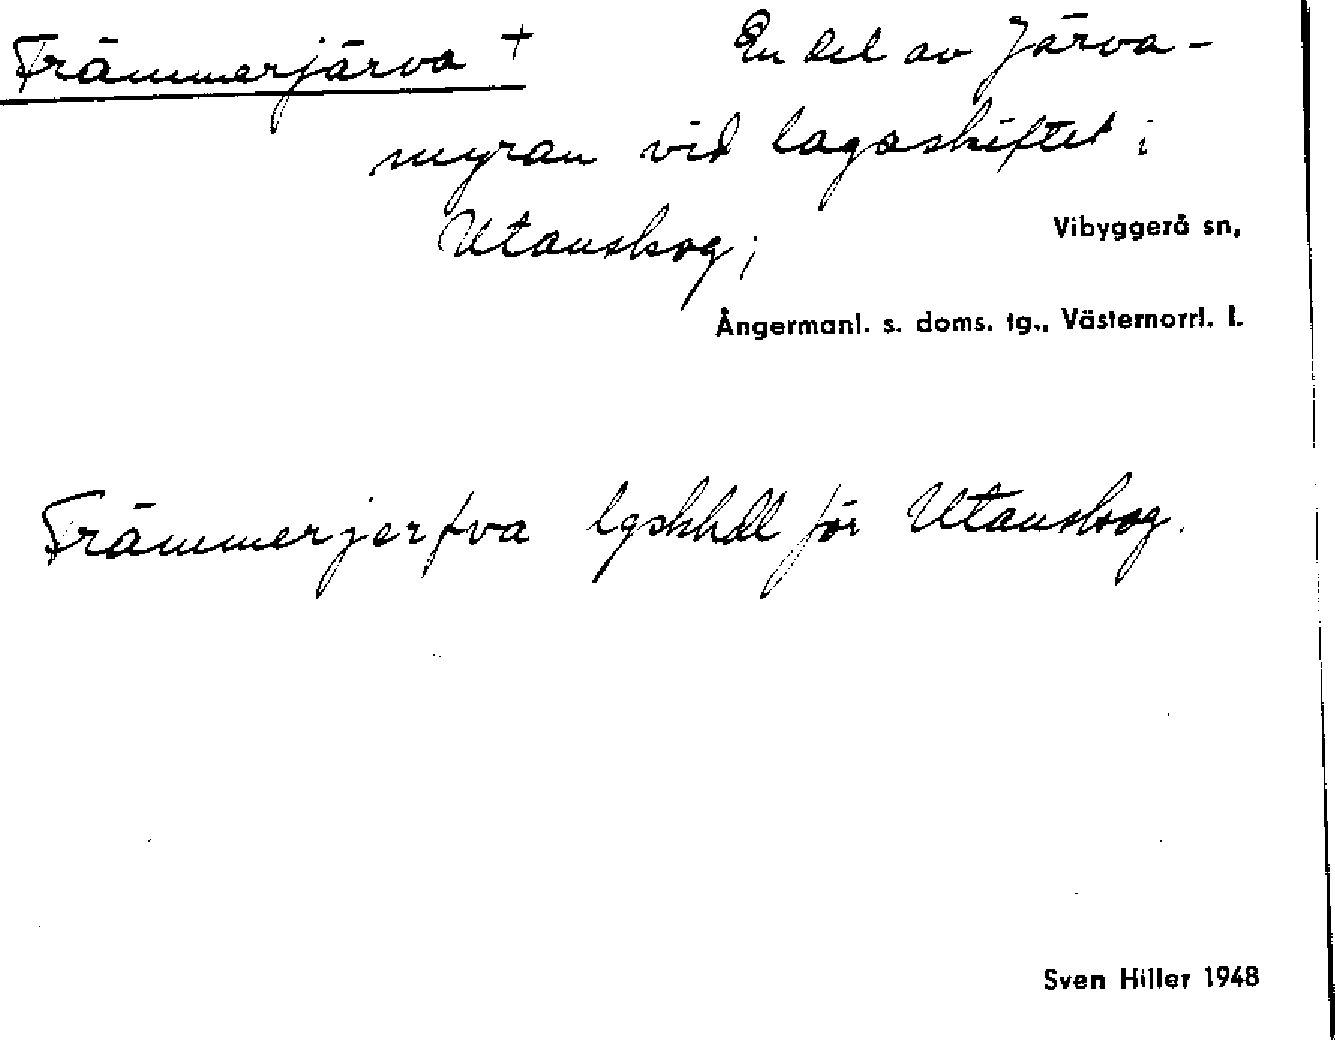 Främmerjärva + En del av Järva-
myran vid lagaskiftet i
Utanskog;
Vibyggerå sn,
Ångermanl. s. doms. tg., Västernorrl. l.
Främmerjerfva lgskhdl för Utanskog.
Sven Hiller 1948